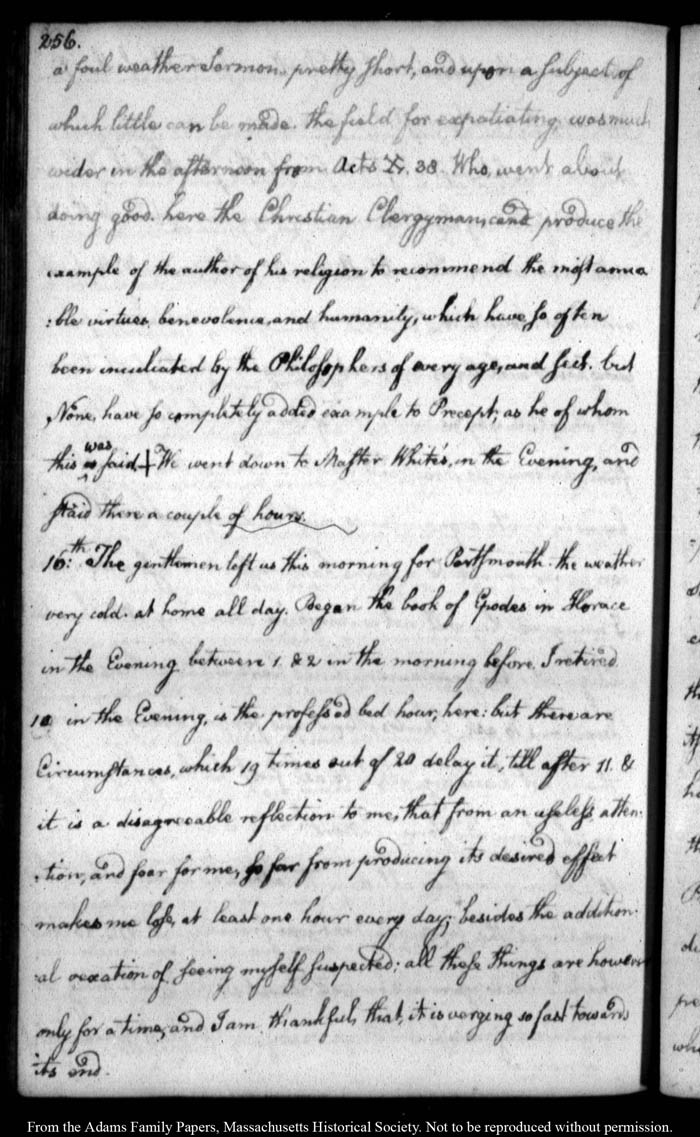 256.
a foul weather Sermon, pretty short, and upon a subject, of
which little can be made. the field for expatiating, was much
wider in the afternoon from Acts X. 38. Who, went about
doing good. here the Christian Clergyman, can produce the
example of the author of his religion to recommend the most amia
:ble virtues, benevolence, and humanity, which have so often
been inculcated by the Philosophers of every age, and sect. but
None, have so completely added example to Precept, as he of whom
was
this is said. We went down to Master White's, in the Evening, and
staid there a couple of hours.
16th: The gentlemen left us this morning for Portsmouth. the weather
very cold. at home all day. Began the book of Epodes in Horace
in the Evening. between 1. & 2 in the morning before, I retired.
10 in the Evening, is the professed bed hour, here: but there are
Circumstances, which 19 times out of 20 delay it, till after 11. &
it is a disagreeable reflection to me, that from an useless atten:
:tion, and fear for me, so far from producing its desired effect
makes me lose, at least one hour every day; besides the addition:
:al vexation of seeing myself suspected; all these things are however
only for a time, and I am thankful, that, it is verging so fast towards
its end.
From the Adams Family Papers, Massachusetts Historical Society. Not to be reproduced without permission.